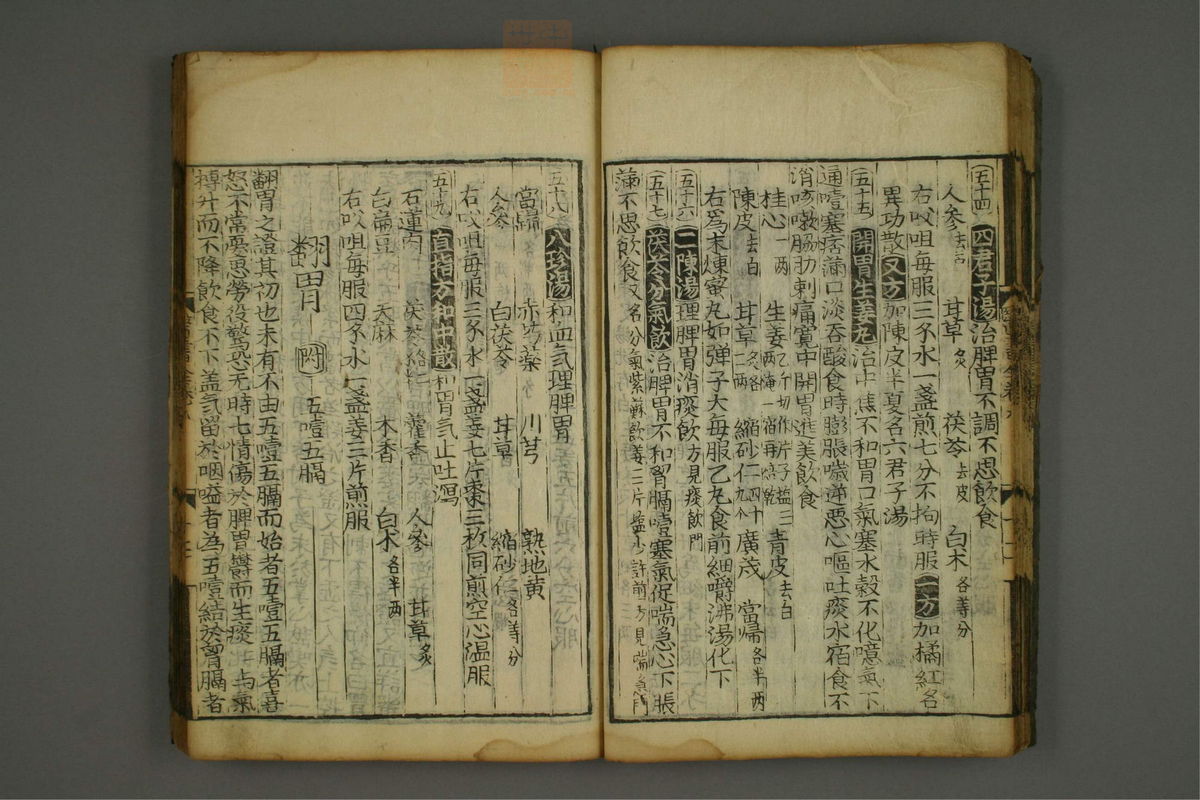 五十四 四君子湯治脾胃不調不思飲食
人參去芦 茸草炙 茯苓去皮 白术各等分
右㕮咀每服三錢水一盞煎七分不拘時服 一方 加橘紅名
異功散 又方 加陳皮半夏名六君子湯
五十五 開胃生姜丸治中焦不和胃口氣塞水穀不化噫氣不
通噎塞痞滿口淡吞酸食時膨脹噦逆惡心嘔吐痰水宿食不
消咳嗽脇肋刺痛寬中開胃進美飲食
桂心一两 生姜 乙斤切作片子塩三两淹一宿再焙乾 青皮去白
陳皮去白 茸草炙各二两 縮砂仁四十九个 廣茂 當歸各半两
右爲末煉蜜丸如弹子大每服乙丸食前細嚼沸湯化下
五十六 二陳湯理脾胃消痰飲方見痰飲門
五十七 茯苓分氣飲治脾胃不和胷膈噎塞氣促喘急心下脹
滿不思飲食又名分氣紫蘇飲姜三片塩少許煎方見喘急門
五十八 八珍湯和血氣理脾胃
當歸 赤芍藥 川芎 熟地黄
人參 白茯苓 茸草 縮砂仁各等分
右㕮咀每服三錢水一盞姜七片棗三枚同煎空心温服
五十九 直指方和中散和胃氣止吐瀉
石蓮肉 茯苓 藿香 人參 茸草炙
白扁豆 天麻 木香 白术各半两
右㕮咀每服四錢水一盞姜三片煎服
翻胃 附 五噎五膈
翻胃之證其初也未有不由五噎五膈而始者五噎五膈者喜
怒不常憂思勞役驚恐无時七情傷於脾胃欝而生痰 与氣
搏升而不降飲食不下盖氣留於咽嗌者為五噎結於胷膈者